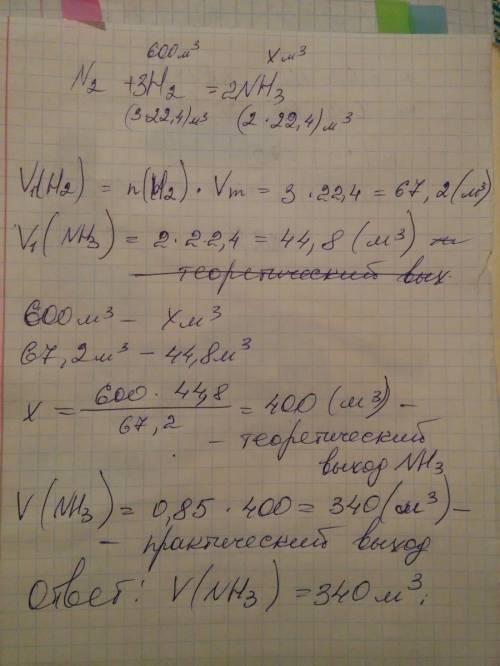 600м³ xм³
N₂ + 3H₂ = 2NH₃
(3·22,4)м³ (2·22,4)м³
V₁(H₂) = n(H₂) · Vm = 3 · 22,4 = 67,2(м³)
V₁(NH₃) = 2·22,4 = 44,8 (м³) –
теоретический вых.
600м³ – xм³
67,2м³ – 44,8м³
x = 600·44,8 / 67,2 = 400 (м³) –
– теоретический
выход NH₃
V(NH₃) = 0,85 · 400 = 340(м³) –
– практический выход
Ответ: V(NH₃) = 340м³;